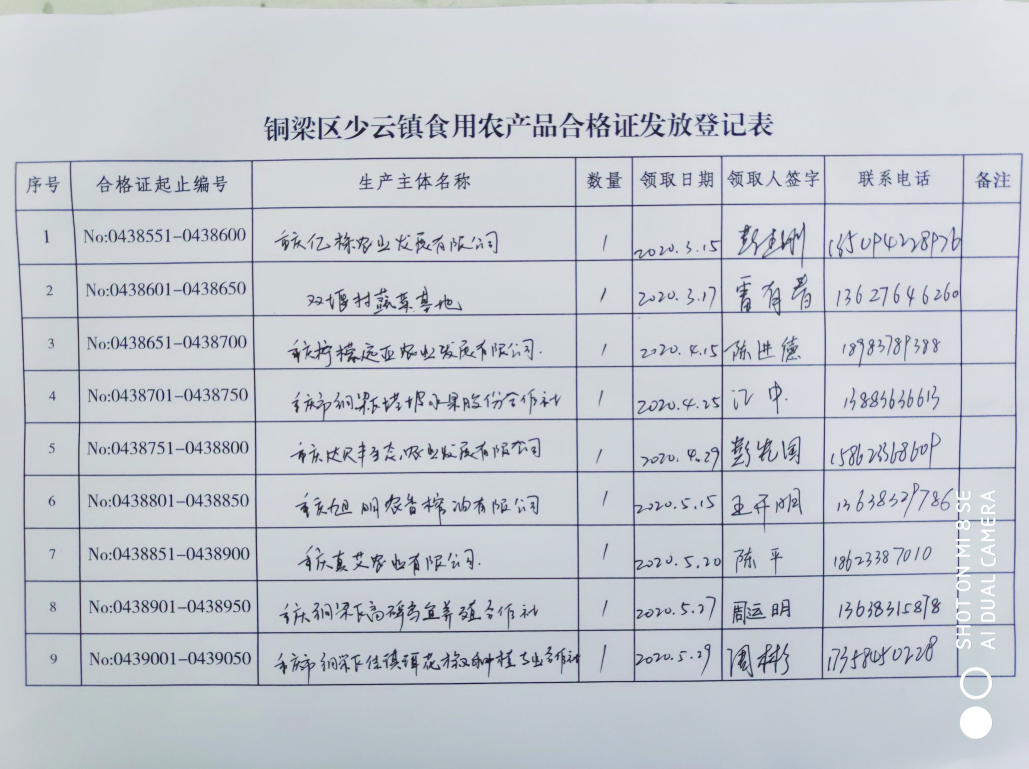 铜梁区少云镇食用农产品合格证发放登记表
序号 合格证起止编号 生产主体名称 数量 领取日期 领取人签字 联系电话 备注
1 No:0438551-0438600 重庆亿栋农业发展有限公司 1 2020.3.15 135094228976
2 No:0438601-0438650 双堰村蔬菜基地 1 2020.3.17 雷有 13627646260
3 No:0438651-0438700 重庆柠檬远亚农业发展有限公司. 1 2020.4.15 陈进德 18983789388
4 No:0438701-0438750 重庆市铜梁区 水果股份合作社 1 2020.4.25 江中 13883636613
5 No:0438751-0438800 重庆达贝丰生态农业发展有限公司 1 2020.4.29 彭先国 158623368609
6 No:0438801-0438850 重庆旭明农香榨油有限公司 1 2020.5.15 王开明 13638329786
7 No:0438851-0438900 重庆真艾农业有限公司. 1 2020.5.20 陈平 18623387010
8 No:0438901-0438950 重庆铜梁区高碑 养殖合作社 1 2020.5.27 周运明 13638315878
9 No:0439001-0439050 重庆市铜梁区佳祺 花椒种植专业合作社 1 2020.5.29 周彬 17358450228
SHOT ON MI 8 SE
AI DUAL CAMERA